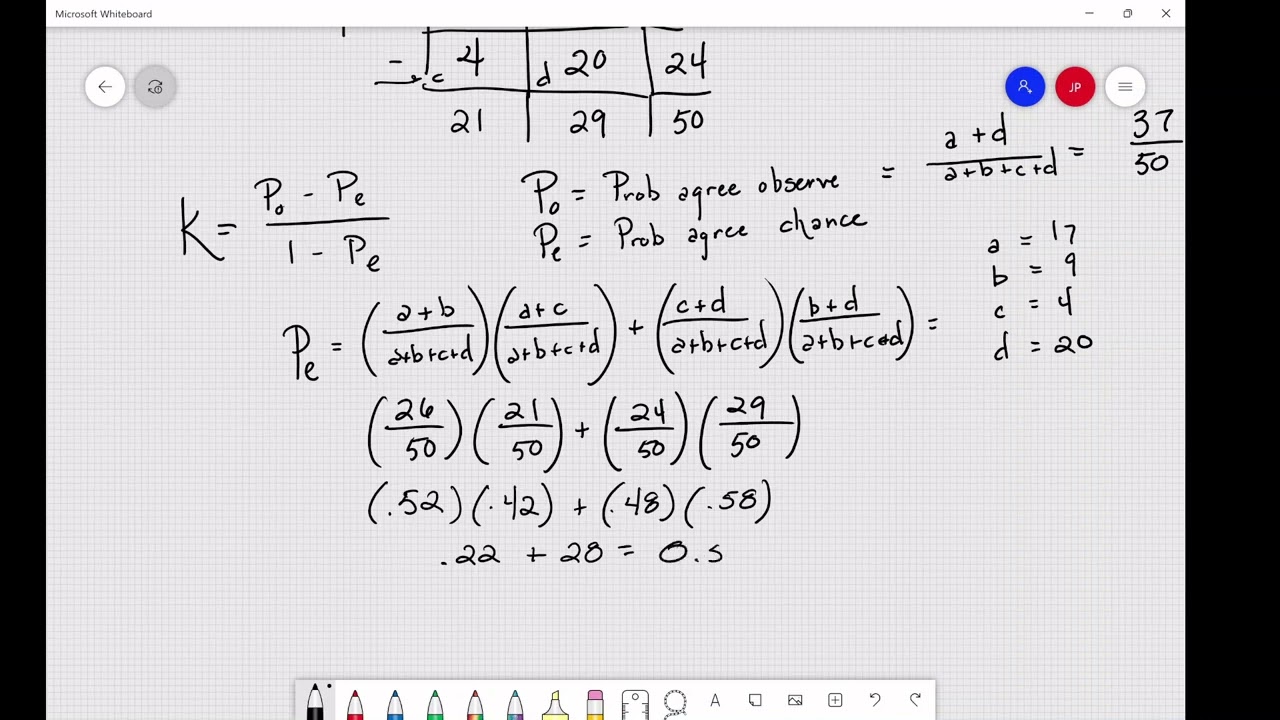 Microsoft Whiteboard
- 4 20 24
c d
21 29 50
JP
K = P₀ - Pe / 1 - Pe
P₀ = Prob agree observe = a + d / a+b+c+d = 37 / 50
Pe = Prob agree chance
a = 17
b = 9
c = 4
d = 20
Pe = (a+b / a+b+c+d)(a+c / a+b+c+d) + (c+d / a+b+c+d)(b+d / a+b+c+d) =
(26/50)(21/50) + (24/50)(29/50)
(.52)(.42) + (.48)(.58)
.22 + 28 = 0.5
A